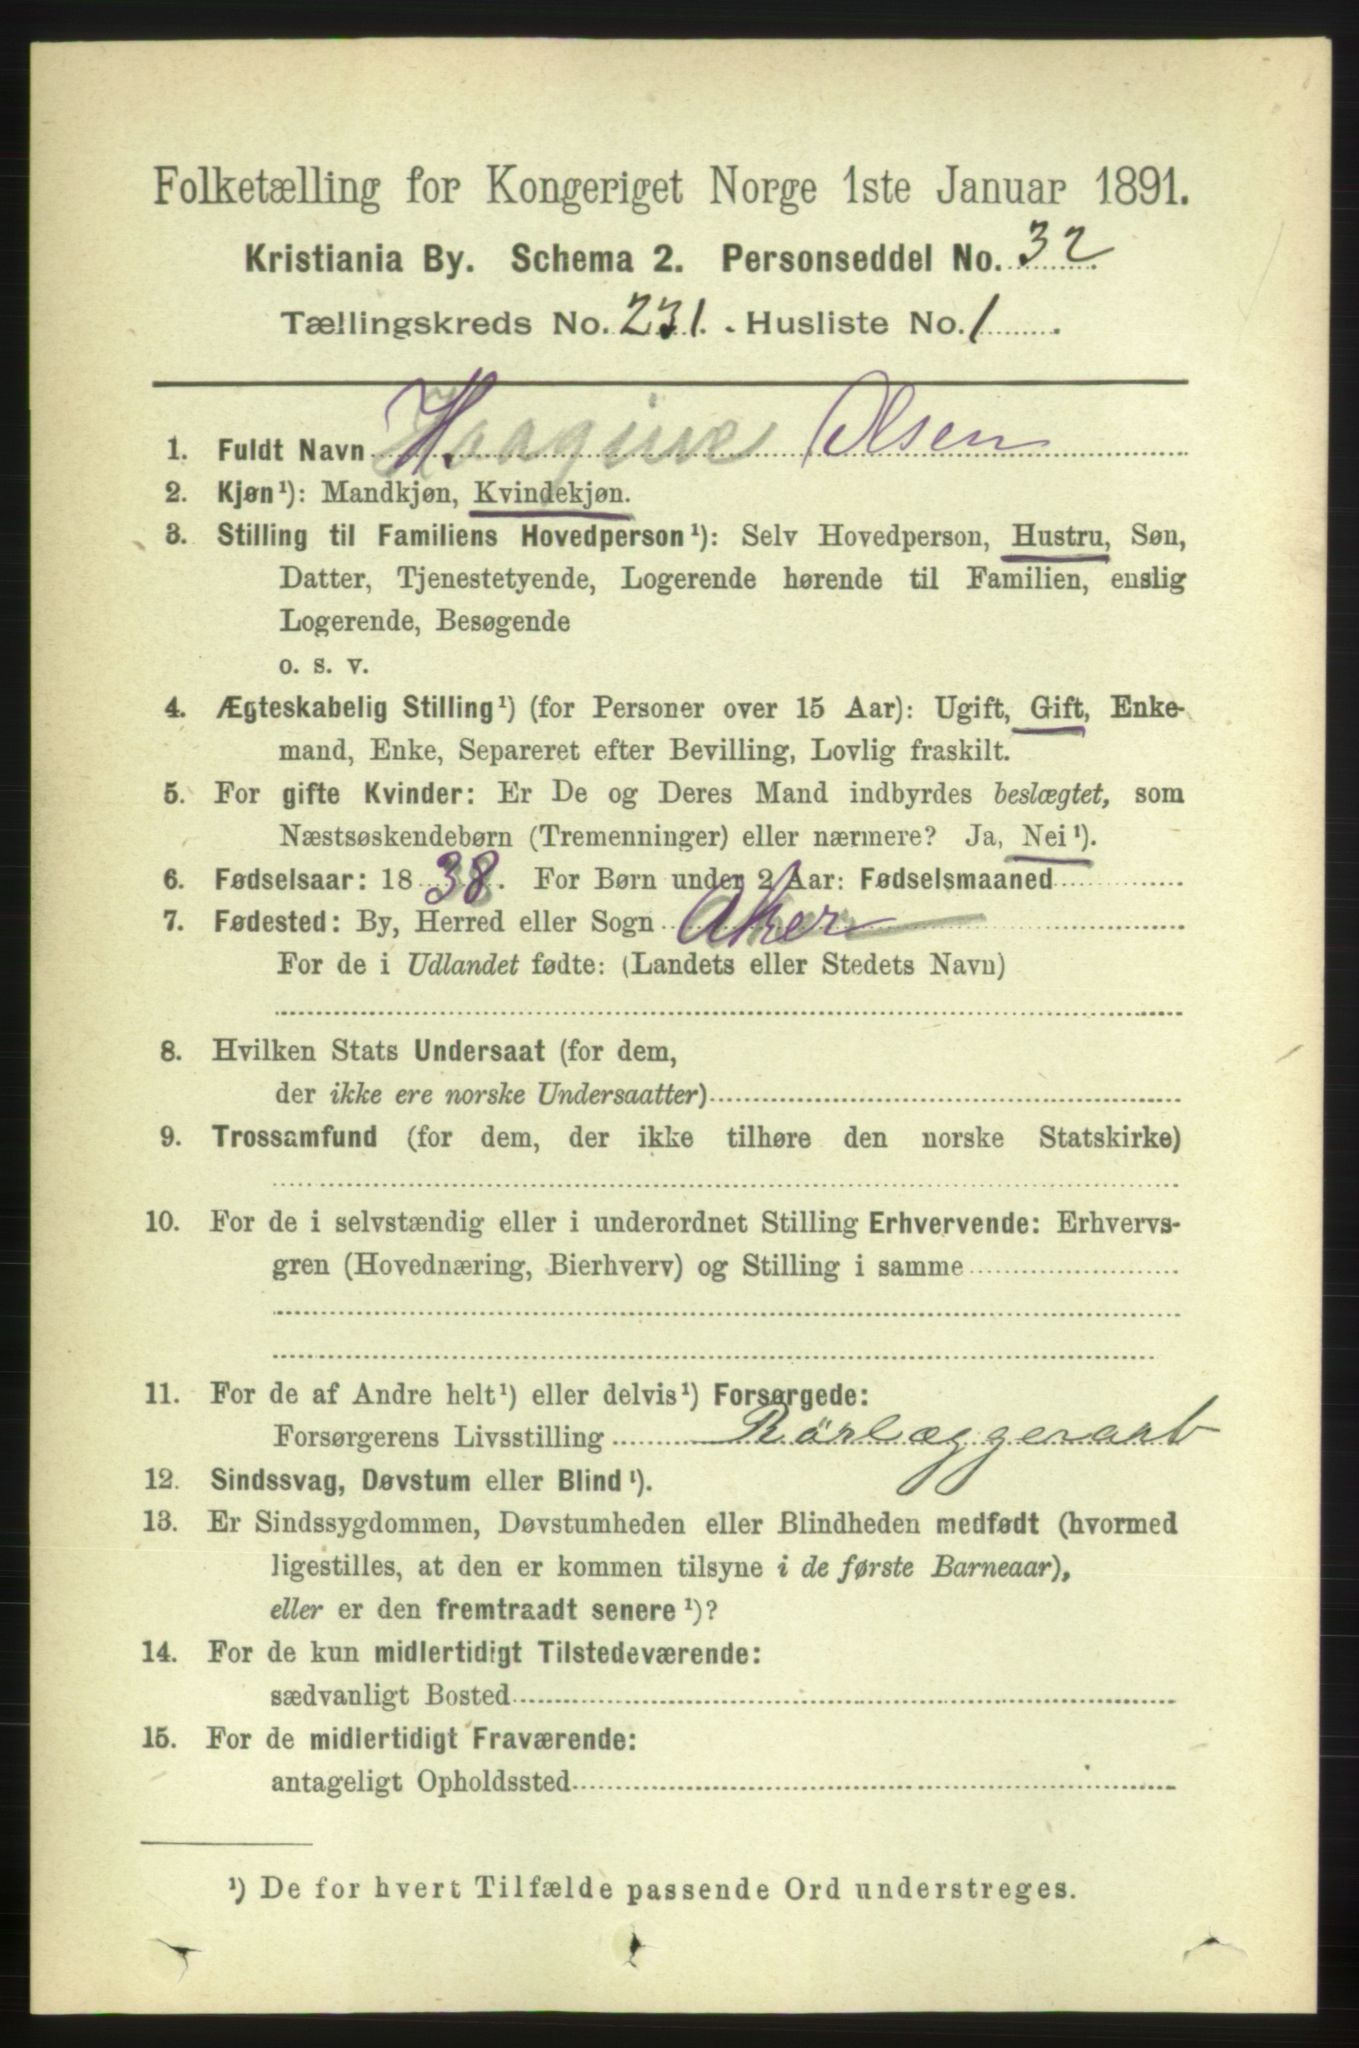 Folketælling for Kongeriget Norge 1ste Januar 1891.
Kristiania By. Schema 2. Personseddel No. 32
Tællingskreds No. 231. Husliste No. 1
1. Fuldt Navn H. Haagine Olsen
2. Kjøn¹): Mandkjøn, Kvindekjøn.
3. Stilling til Familiens Hovedperson¹): Selv Hovedperson, Hustru, Søn,
Datter, Tjenestetyende, Logerende hørende til Familien, enslig
Logerende, Besøgende
o. s. v.
4. Ægteskabelig Stilling¹) (for Personer over 15 Aar): Ugift, Gift, Enke-
mand, Enke, Separeret efter Bevilling, Lovlig fraskilt.
5. For gifte Kvinder: Er De og Deres Mand indbyrdes beslægtet, som
Næstsøskendebørn (Tremenninger) eller nærmere? Ja, Nei¹).
6. Fødselsaar: 1838. For Børn under 2 Aar: Fødselsmaaned
7. Fødested: By, Herred eller Sogn Aker
For de i Udlandet fødte: (Landets eller Stedets Navn)
8. Hvilken Stats Undersaat (for dem,
der ikke ere norske Undersaatter)
9. Trossamfund (for dem, der ikke tilhøre den norske Statskirke)
10. For de i selvstændig eller i underordnet Stilling Erhvervende: Erhvervs-
gren (Hovednæring, Bierhverv) og Stilling i samme
11. For de af Andre helt¹) eller delvis¹) Forsørgede:
Forsørgerens Livsstilling Rörlæggerarb
12. Sindssvag, Døvstum eller Blind¹).
13. Er Sindssygdommen, Døvstumheden eller Blindheden medfødt (hvormed
ligestilles, at den er kommen tilsyne i de første Barneaar),
eller er den fremtraadt senere¹)?
14. For de kun midlertidigt Tilstedeværende:
sædvanligt Bosted
15. For de midlertidigt Fraværende:
antageligt Opholdssted
¹) De for hvert Tilfælde passende Ord understreges.